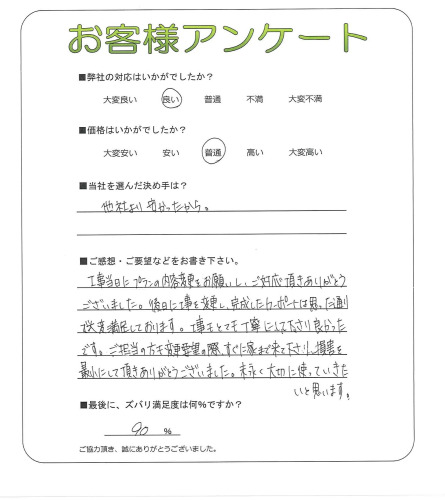 お客様アンケート
■弊社の対応はいかがでしたか?
大変良い 良い 普通 不満 大変不満
■価格はいかがでしたか?
大変安い 安い 普通 高い 大変高い
■当社を選んだ決め手は?
他社より安かったから。
■ご感想・ご要望などをお書き下さい。
工事当日にプランの内容変更をお願いし、ご対応頂きありがとう
ございました。後日に工事を変更し、完成したカーポートは思った通り
で大変満足しております。工事もとても丁寧にして下さり良かった
です。ご担当の方も変更要望の際、すぐに家まで来て下さり、損害を
最小にして頂きありがとうございました。末永く大切に使っていきた
いと思います。
■最後に、ズバリ満足度は何%ですか?
90 %
ご協力頂き、誠にありがとうございました。